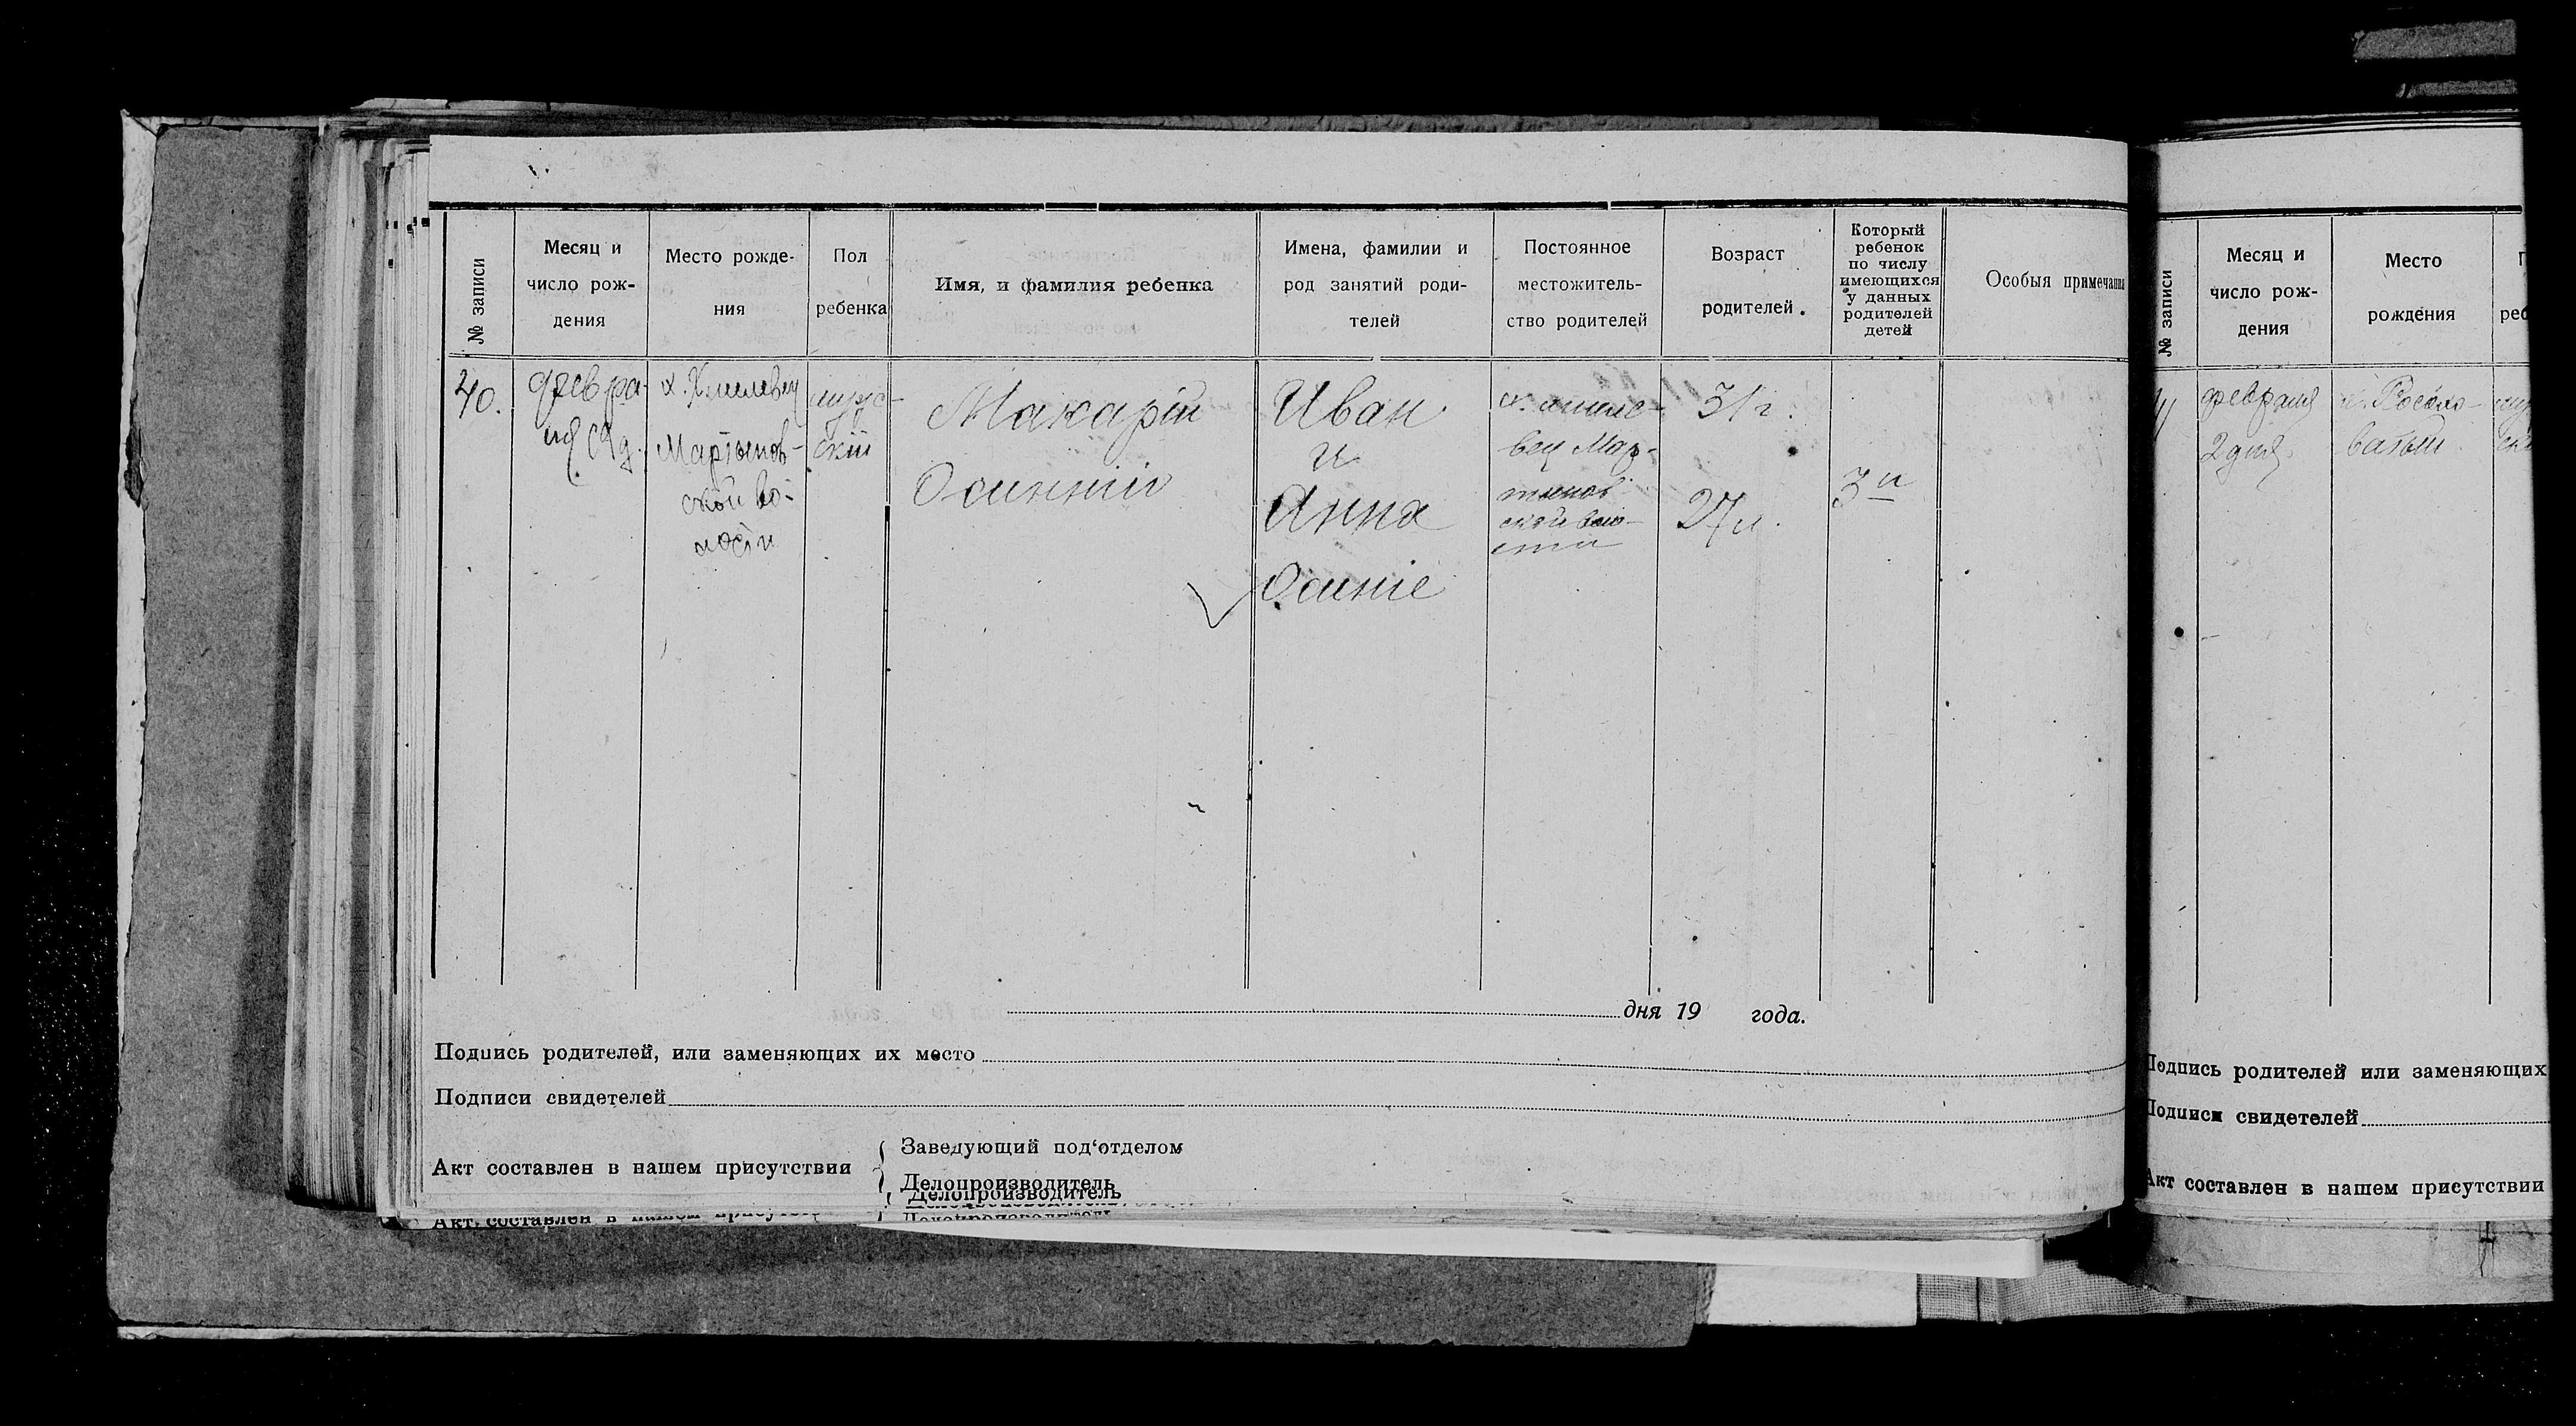 № записи
Месяц и
число рож-
дения
Место рожде-
ния
Пол
ребенка
Имя, и фамилия ребенка
Имена, фамилии и
род занятий роди-
телей
Постоянное
местожитель-
ство родителей
Возраст
родителей.
Который
ребенок
по числу
имеющихся
у данных
родителей
детей
Особыя примечания
40.
февра-
ля
х.
Мартынов-
ской во-
лости
мужс-
кий
Макарій
Осинній
Иван
и
Анна
Осиніе
х.
вец Мар-
тынов
ской воло-
сти
31 г.
27 л.
3й
дня 19 года.
Подпись родителей, или заменяющих их место
Подписи свидетелей
Акт составлен в нашем присутствии
Заведующий под‘отделом
Делопроизводитель
Делопроизводитель
Акт составлен в нашем присутст
Делопроизводитель
№ записи
Месяц и
число рож-
дения
Место
рождения
П
реб
февраля
2 дня
ватый
Подпись родителей или заменяющих
Подписи свидетелей
Акт составлен в нашем присутствии